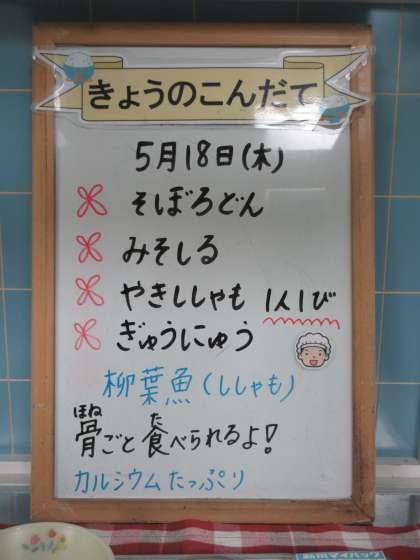 きょうのこんだて
5月18日(木)
そぼろどん
みそしる
やきししゃも 1人1び
ぎゅうにゅう
柳葉魚(ししゃも)
骨ごと食べられるよ!
ほね た
カルシウムたっぷり